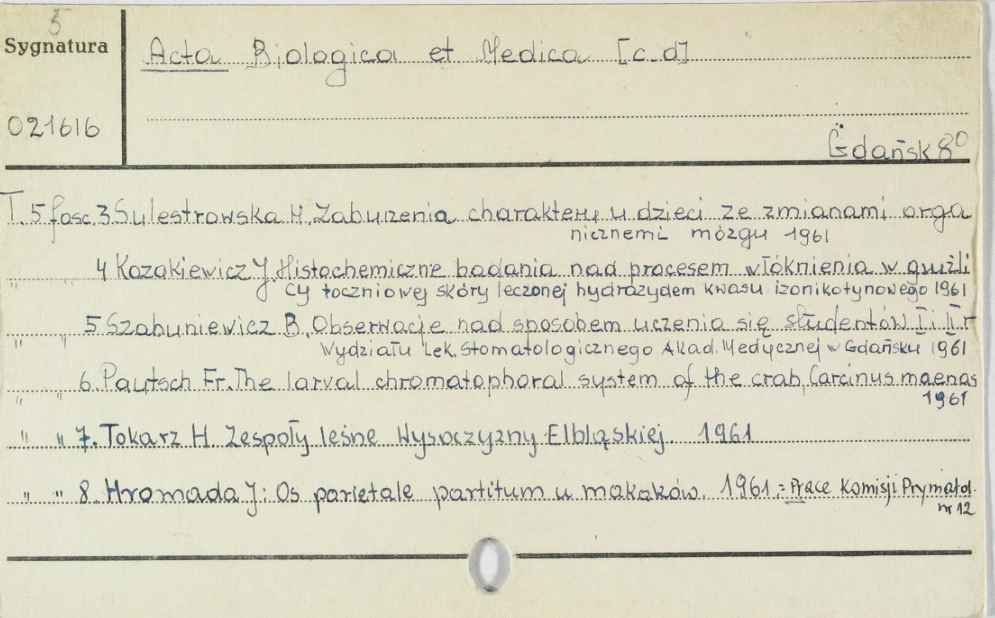 5
Sygnatura
Acta Biologica et Medica [c.d]
021616
Gdańsk 8⁰
T. 5 fasc. 3 Sulestrowska H. Zaburzenia charakteru u dzieci ze zmianami orga
nicznemi mózgu 1961
" " 4 Kozakiewicz J. Histochemiczne badania nad procesem włóknienia w gruźli
cy toczniowej skóry leczonej hydrazydem kwasu izonikotynowego 1961
" " 5. Szabuniewicz B. Obserwacje nad sposobem uczenia się studentów I i II r
Wydziału Lek. Stomatologicznego Akad. Medycznej w Gdańsku 1961
" " 6. Pautsch Fr. The larval chromatophoral system of the crab, Carcinus maenas
1961
" " 7. Tokarz H. Zespoły leśne Wysoczyzny Elbląskiej 1961
" " 8. Hromada J: Os parietale partitum u makaków. 1961.= Prace Komisji Prymatol.
nr 12